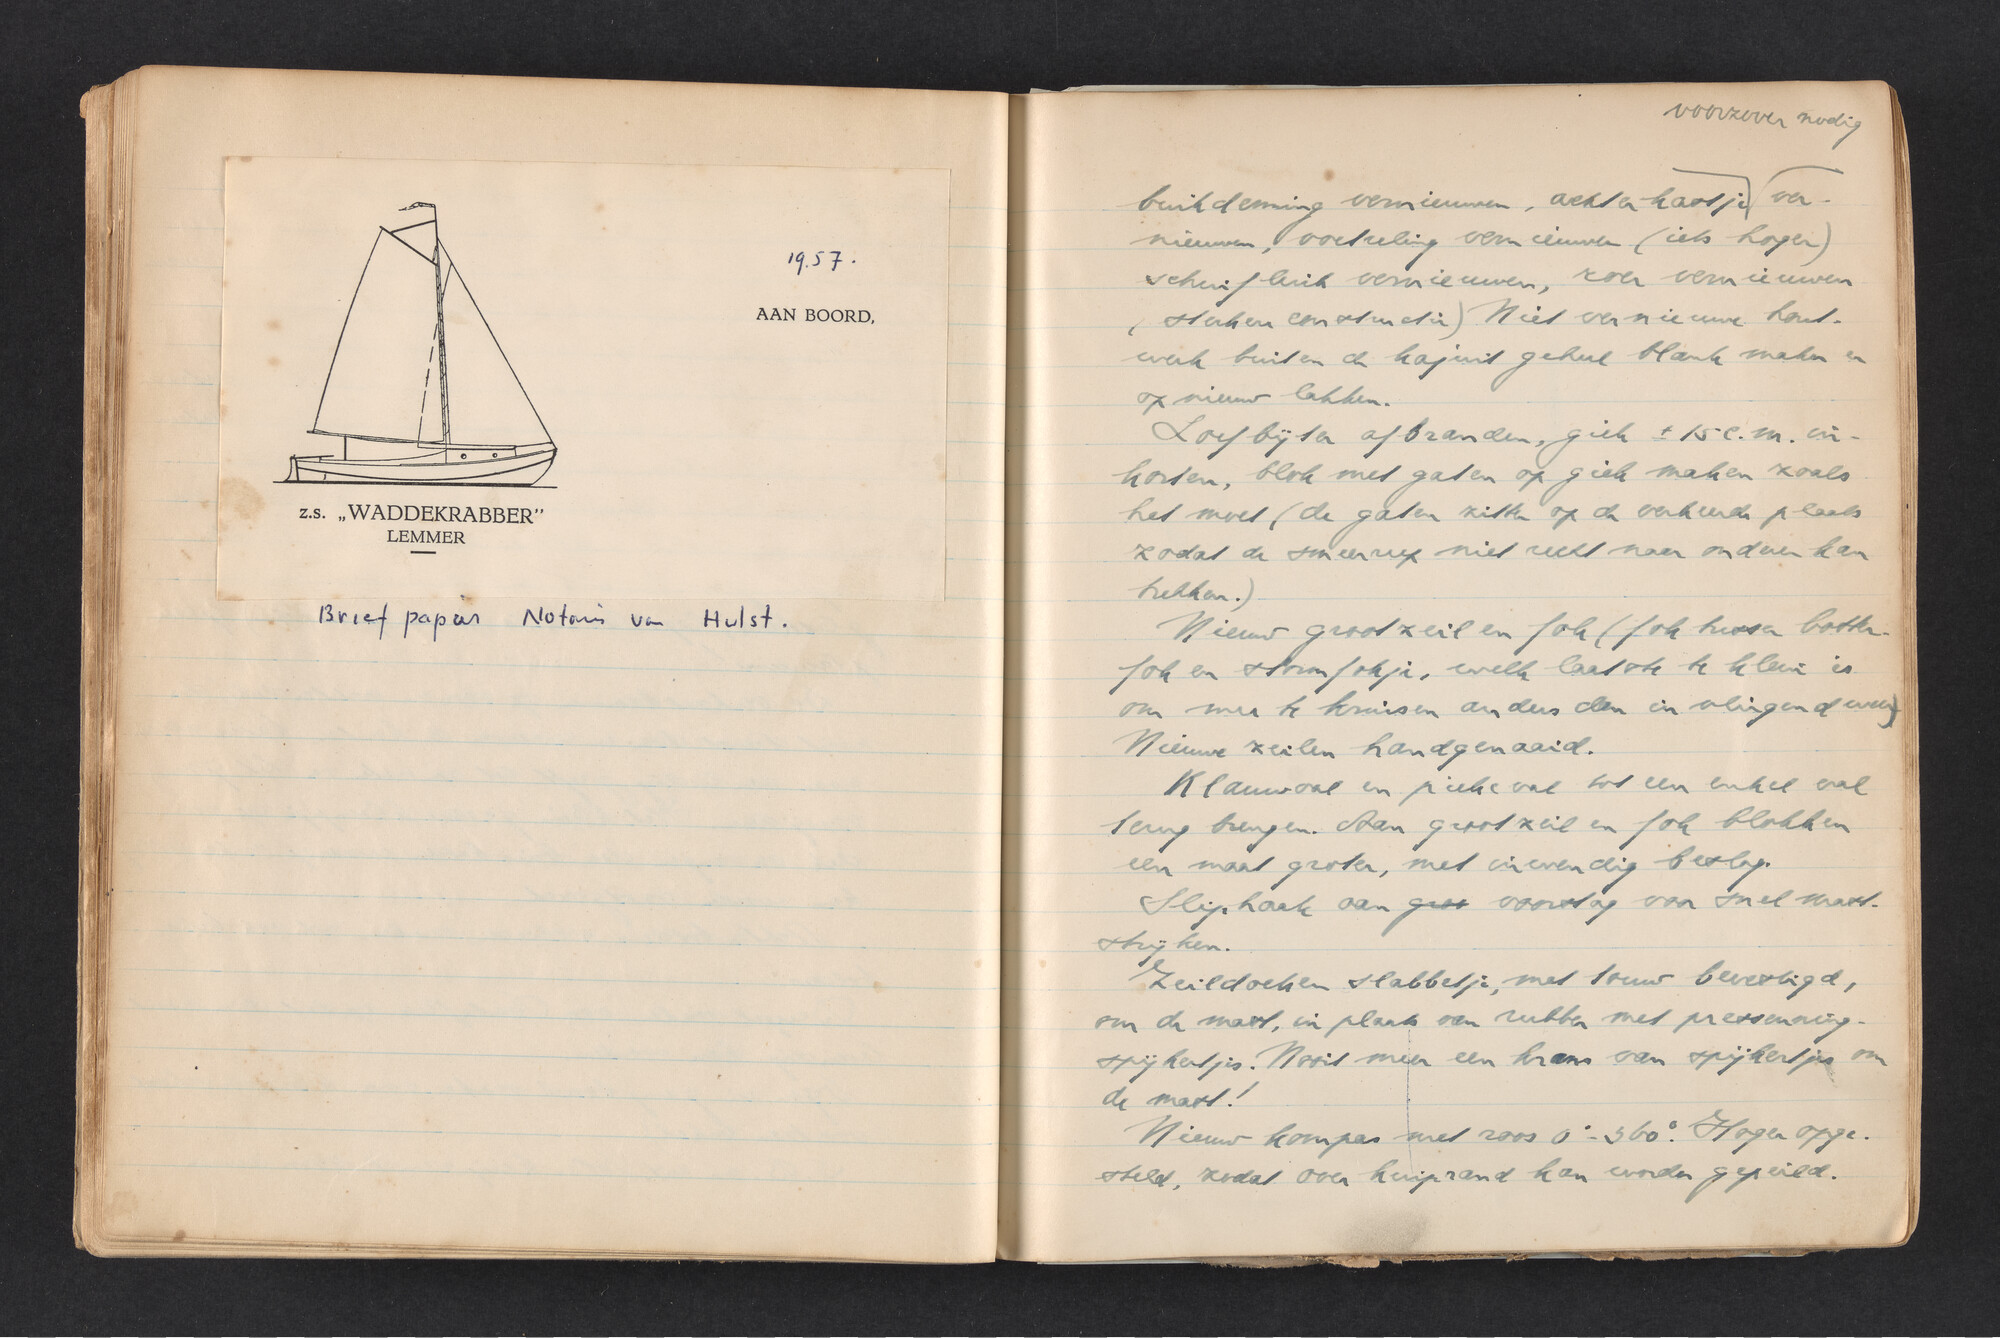 19.57.
AAN BOORD,
z.s. „WADDEKRABBER”
LEMMER
Briefpapier Notaris van Hulst.
voorzover nodig
buikdenning vernieuwen, achterkastje ver-
nieuwen, voetreling vernieuwen (iets hoger)
schuifluik vernieuwen, roer vernieuwen
(sterkere constructie) Niet vernieuwe hout-
werk buiten de kajuit geheel blank maken en
opnieuw lakken.
Loefbijter afbranden, giek ± 15 c.m. in-
korten, blok met gaten op giek maken zoals
het moet (de gaten zitten op de verkeerde plaats
zodat de smeerreep niet recht naar onderen kan
trekken.)
Nieuw grootzeil en fok (fok tussen botter-
fok en stormfokje, welk laatste te klein is
om mee te kruisen anders dan in vliegend weer)
Nieuwe zeilen handgenaaid.
Klauwval en piekeval tot een enkel val
terug brengen. Aan grootzeil en fok blokken
een maat groter, met inwendig beslag.
Sliphaak aan groot voorstag voor snel mast-
strijken.
Zeildoeken slabbetje, met touw bevestigd,
om de mast, in plaats van rubber met pressenning-
spijkertjes. Nooit meer een krans van spijkertjes om
de mast!
Nieuw kompas met roos 0° - 360°. Hoger opge-
steld, zodat over kuiprand kan worden gepeild.